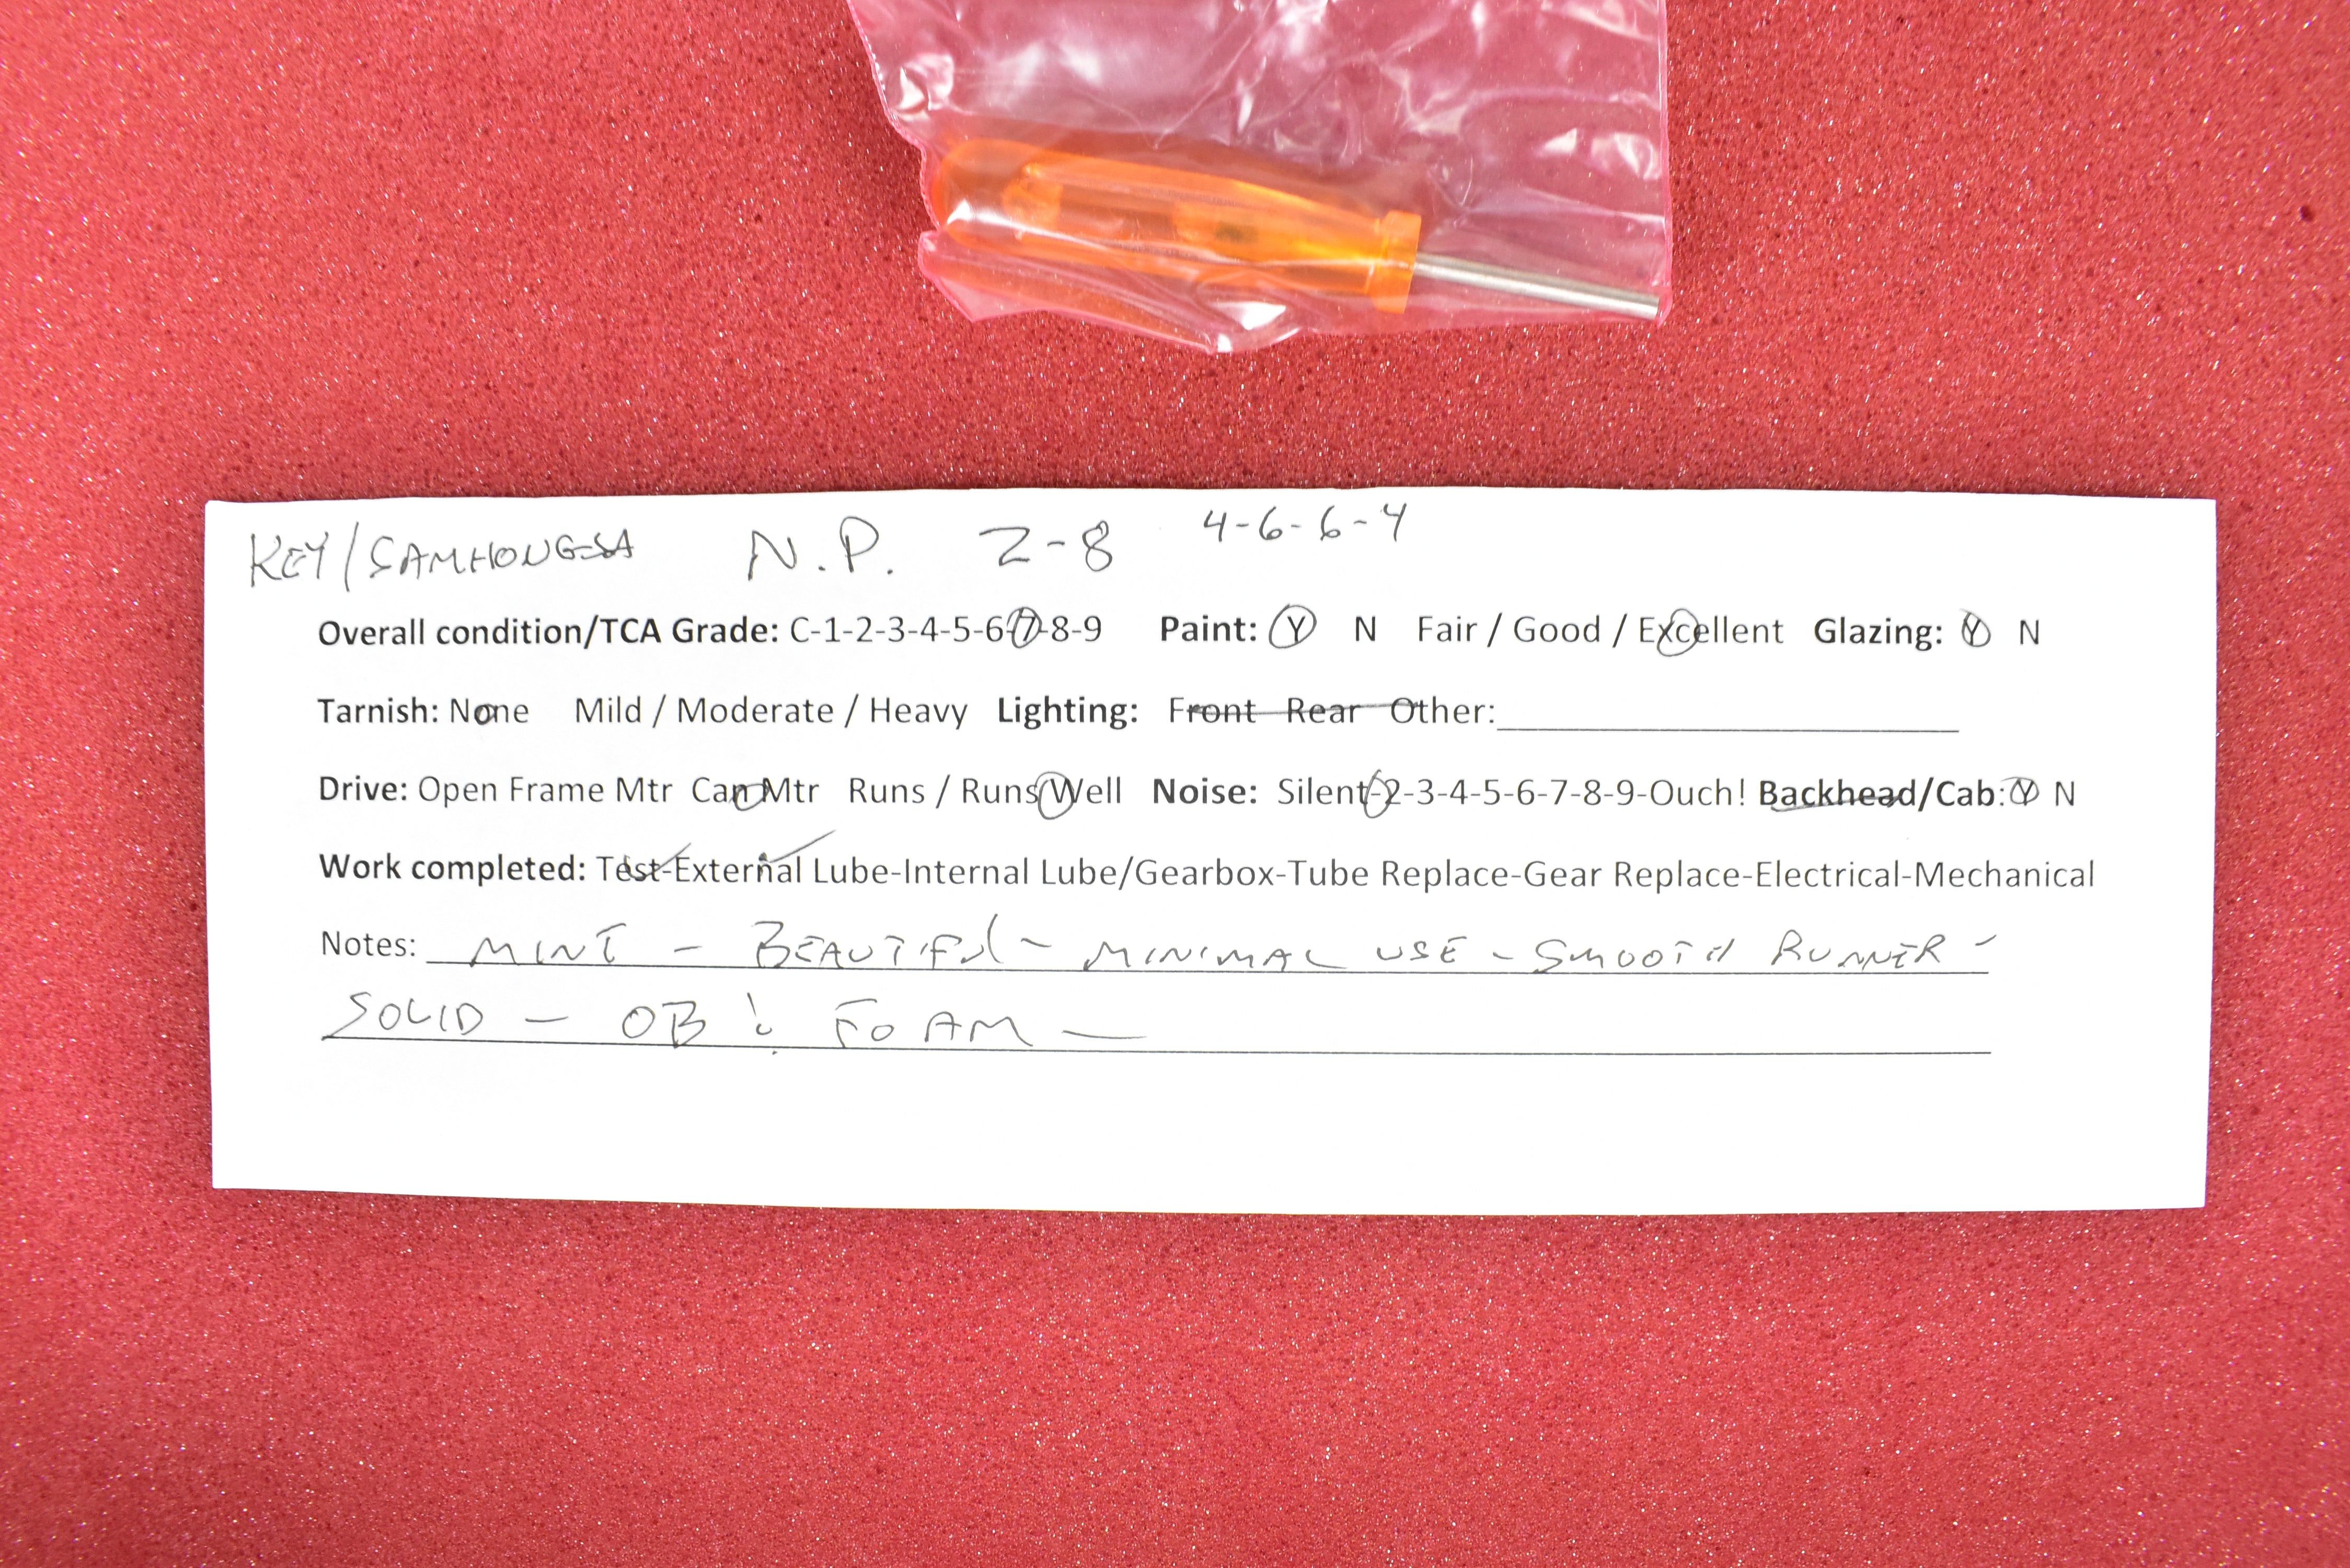 KEY/SAMHONGSA N.P. Z-8 4-6-6-4
Overall condition/TCA Grade: C-1-2-3-4-5-6-7-8-9 Paint: Y N Fair / Good / Excellent Glazing: Y N
Tarnish: None Mild / Moderate / Heavy Lighting: Front Rear Other:
Drive: Open Frame Mtr Can Mtr Runs / Runs Well Noise: Silent-2-3-4-5-6-7-8-9-Ouch! Backhead/Cab: Y N
Work completed: Test-External Lube-Internal Lube/Gearbox-Tube Replace-Gear Replace-Electrical-Mechanical
Notes: MINT - BEAUTIFUL - MINIMAL USE - SMOOTH RUNNER -
SOLID - OB & FOAM -